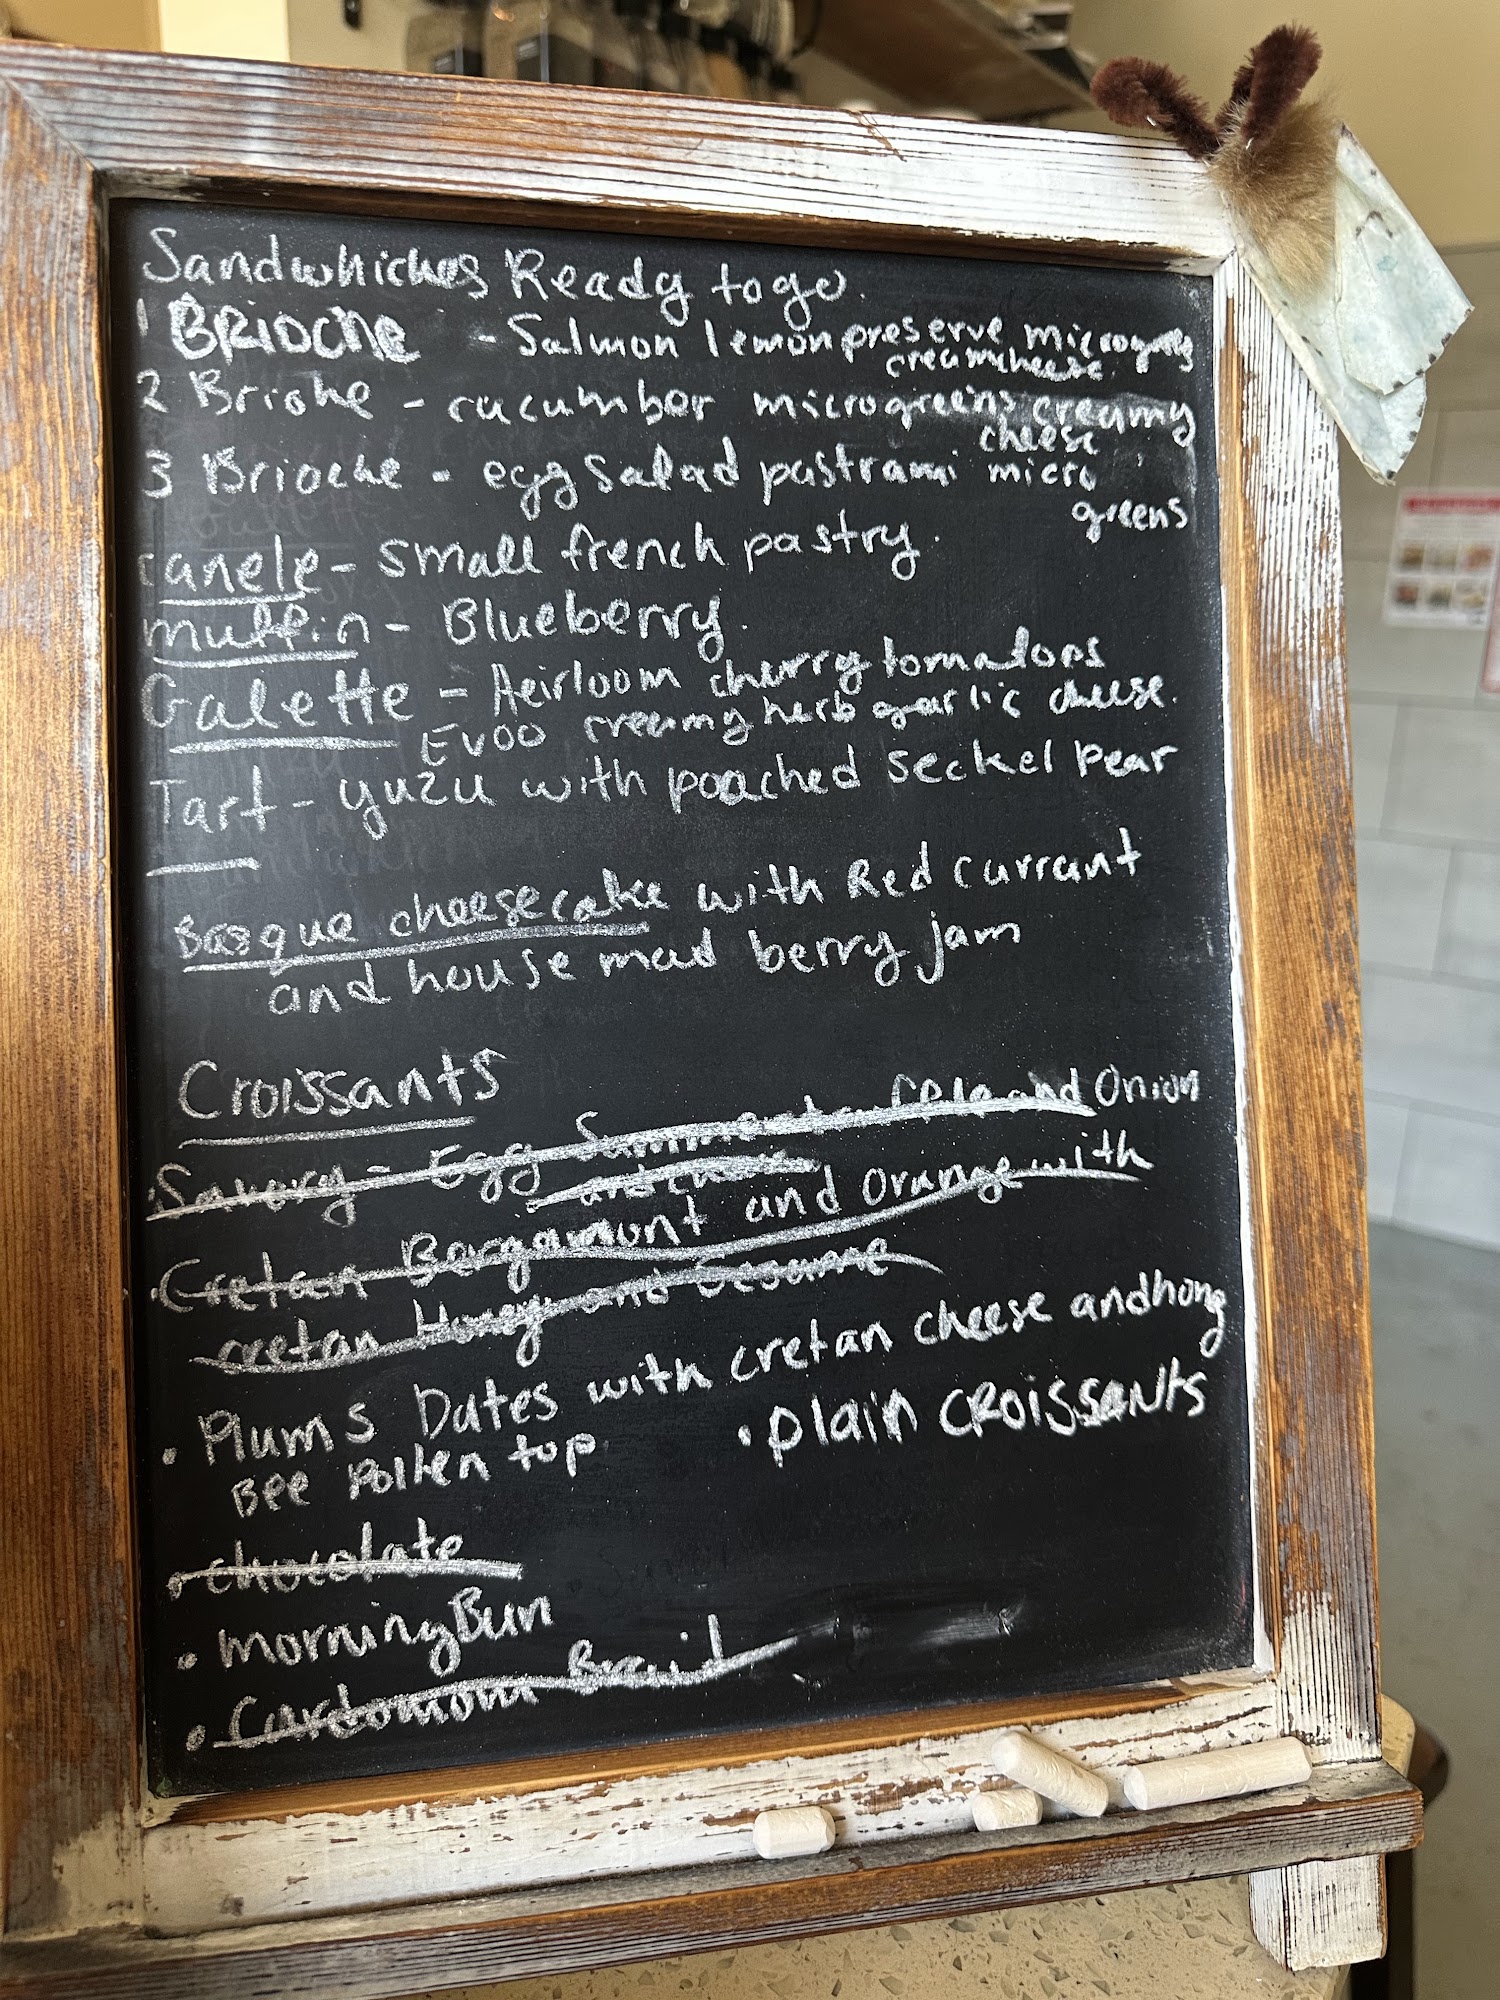 Sandwhiches Ready to go.
1 BRIOChe - Salmon lemon preserve microgreens
creamcheese.
2 Brioche - cucumber microgreens creamy
cheese
3 Brioche - egg salad pastrami micro
greens
canele - small french pastry.
muffin - Blueberry.
Galette - Heirloom cherry tomatoes
EVOO creamy herb garlic cheese.
Tart - yuzu with poached seckel pear
Basque cheesecake with Red currant
and house mad berry jam
Croissants
Savory - Egg and Onion
Cretan Bargamont and Orange with
cretan Honey and Sesame
• Plums Dates with cretan cheese and hony
Bee Pollen top.
• plain CROISSANTS
• chocolate
• morning Bun
• Cardomom Braid